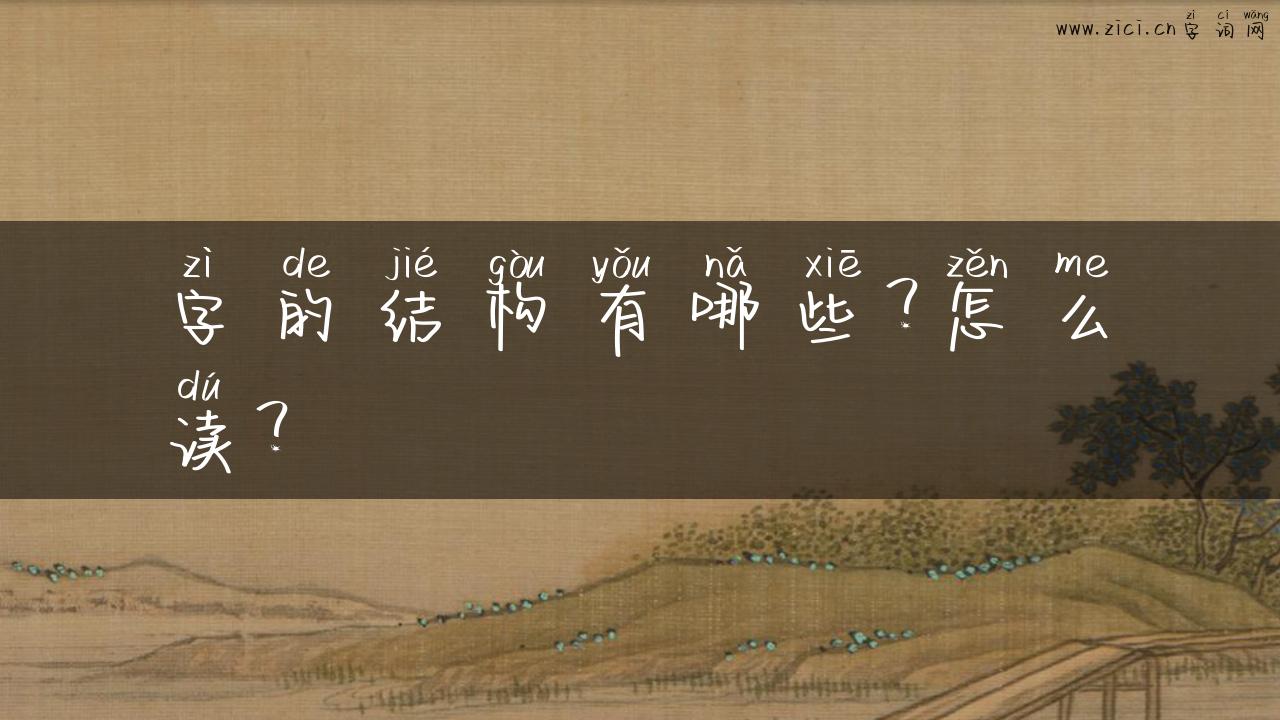 zì cí wǎng
www.zici.cn字词网
zì de jié gòu yǒu nǎ xiē zěn me
字的结构有哪些?怎么
dú
读?